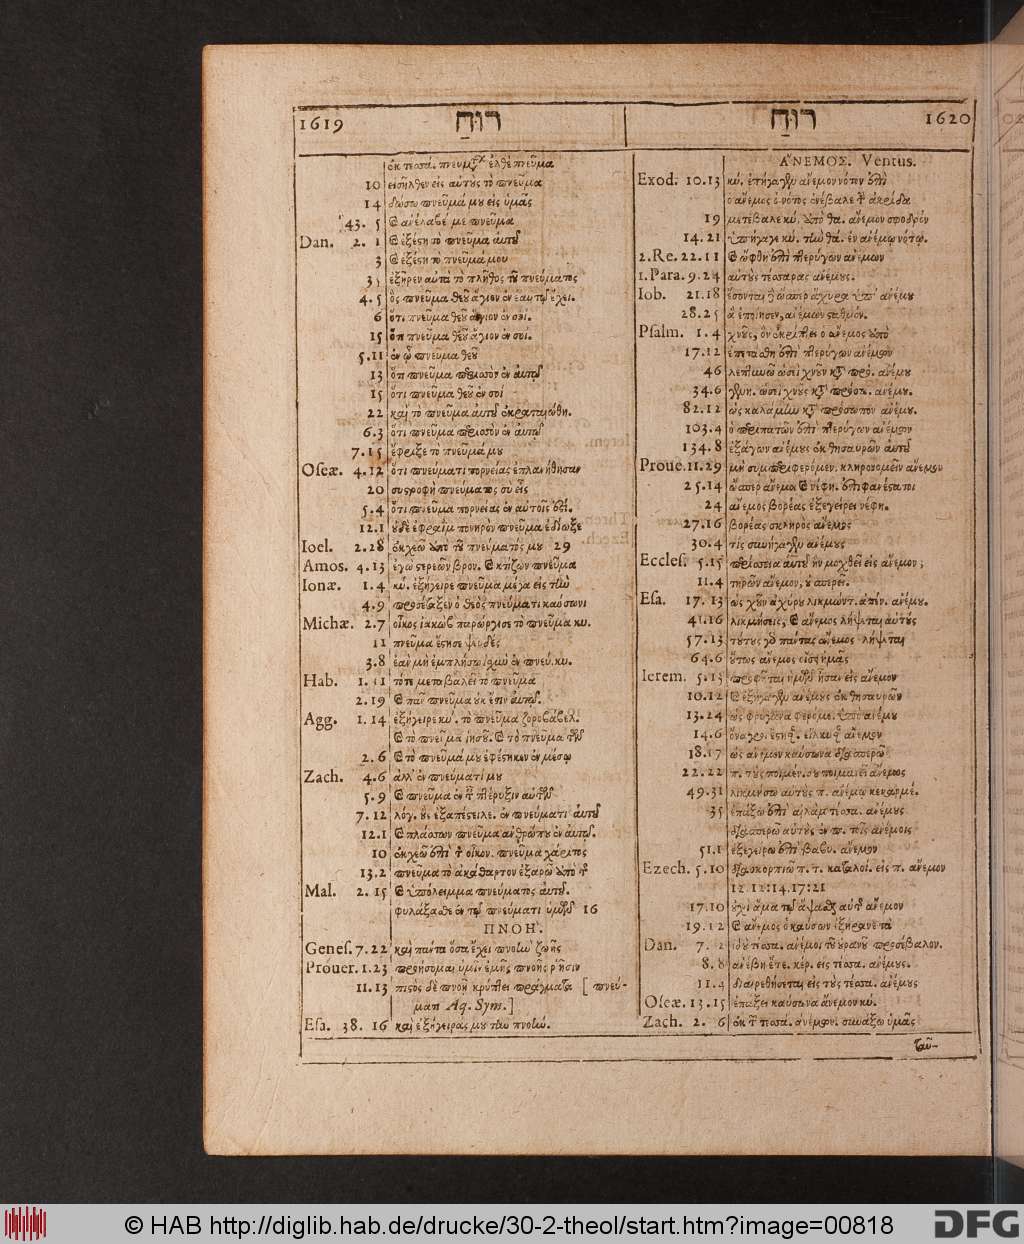 1619 רוּחַ
רוּחַ 1620
ἐκ τεσσά. πνευμ. ἐλθὲ πνεῦμα
10 εἰσῆλθεν εἰς αὐτοὺς τὸ πνεῦμα
14 δώσω πνεῦμά μου εἰς ὑμᾶς
43. 5 καὶ ἀνέλαβέ με πνεῦμα
Dan. 2. 1 καὶ ἐξέστη τὸ πνεῦμα αὐτοῦ
3 καὶ ἐξέστη τὸ πνεῦμα μου
35 ἐξῆρεν αὐτὰ τὸ πλῆθος τοῦ πνεύματος
4. 5 ὃς πνεῦμα θεοῦ ἅγιον ἐν ἑαυτῷ ἔχει.
6 ὅτι πνεῦμα θεοῦ ἅγιον ἐν σοί.
15 ὅτι πνεῦμα θεοῦ ἅγιον ἐν σοί.
5. 11 ἐν ᾧ πνεῦμα θεοῦ
13 ὅτι πνεῦμα περισσὸν ἐν αὐτῷ
15 ὅτι πνεῦμα θεοῦ ἐν σοί
22 καὶ τὸ πνεῦμα αὐτοῦ ἐκραταιώθη.
6. 3 ὅτι πνεῦμα περισσὸν ἐν αὐτῷ
7. 15 ἔφριξε τὸ πνεῦμά μου
Oseæ. 4. 12 ὅτι πνεύματι πορνείας ἐπλανήθησαν
20 συστροφὴ πνεύματος σὺ εἶς
5. 4 ὅτι πνεῦμα πορνείας ἐν αὐτοῖς ἐστί.
12. 1 ὁ δὲ ἐφραῒμ πονηρὸν πνεῦμα ἐδίωξε
Ioel. 2. 28 ἐκχεῶ ἀπὸ τοῦ πνεύματός μου 29
Amos. 4. 13 ἐγὼ στερεῶν βρον. καὶ κτίζων πνεῦμα
Ionæ. 1. 4 κύ. ἐξήγειρε πνεῦμα μέγα εἰς τὴν
4. 9 προσέταξεν ὁ θεὸς πνεύματι καύσωνι
Michæ. 2. 7 οἶκος ἰακὼβ παρώργισε τὸ πνεῦμα κυ.
11 πνεῦμα ἔστησε ψευδὲς
3. 8 ἐὰν μὴ ἐμπλήσω ἰσχὺν ἐν πνεύ. κυ.
Hab. 1. 11 τότε μεταβαλεῖ τὸ πνεῦμα
2. 19 καὶ πᾶν πνεῦμα οὐκ ἔστιν αὐτοῦ.
Agg. 1. 14 ἐξήγειρε κυ. τὸ πνεῦμα ζοροβάβελ.
καὶ τὸ πνεῦμα ἰησοῦ. καὶ τὸ πνεῦμα τῶν
2. 6 καὶ τὸ πνεῦμά μου ἐφέστηκεν ἐν μέσῳ
Zach. 4. 6 ἀλλ' ἐν πνεύματί μου
5. 9 καὶ πνεῦμα ἐν τ. πτέρυξιν αὐτῶν
7. 12 λόγ. οὓς ἐξαπέστειλε. ἐν πνεύματι αὐτοῦ
12. 1 καὶ πλάσσων πνεῦμα ἀνθρώπου ἐν αὐτῷ.
10 ἐκχεῶ ἐπὶ τ. οἶκον. πνεῦμα χάριτος
13. 2 πνεῦμα τὸ ἀκάθαρτον ἐξαρῶ ἀπὸ τ.
Mal. 2. 15 καὶ ὑπόλειμμα πνεύματος αὐτοῦ.
φυλάξασθε ἐν τῷ πνεύματι ὑμῶν 16
ΠΝΟΗ'.
Genes. 7. 22 καὶ πάντα ὅσα ἔχει πνοὴν ζωῆς
Prouer. 1. 23 προήσομαι ὑμῖν ἐμῆς πνοῆς ῥῆσιν
11. 13 πιστὸς δὲ πνοῇ κρύπτει πράγματα [ πνεύ-
ματι Aq. Sym.]
Esa. 38. 16 καὶ ἐξήγειράς μου τὴν πνοήν.
ἌΝΕΜΟΣ. Ventus.
Exod. 10. 13 κύ. ἐπήγαγεν ἄνεμον νότον ἐπὶ
ὁ ἄνεμος ὁ νότος ἀνέβαλε τ. ἀκρίδα
19 μετέβαλε κύ. ἀπὸ θα. ἄνεμον σφοδρὸν
14. 21 ὑπήγαγε κύ. τὴν θα. ἐν ἀνέμῳ νότῳ.
2. Re. 22. 11 καὶ ὤφθη ἐπὶ πτερύγων ἀνέμων
1. Para. 9. 24 αὐτὰς τέσσαρας ἀνέμους.
Iob. 21. 18 ἔσονται ὥσπερ ἄχυρα ὑπ' ἀνέμου
28. 25 ἃ ἐποίησεν, ἀνέμων σταθμὸν.
Psalm. 1. 4 χνοῦς, ὃν ἐκρίπτει ὁ ἄνεμος ἀπὸ
17. 12 ἐπετάσθη ἐπὶ πτερύγων ἀνέμων
46 λεπτυνῶ ὡσεὶ χνοῦν κτ. πρό. ἀνέμου
34. 6 ὡσεὶ χνοῦς κτ. πρόσω. ἀνέμου.
82. 12 ὡς καλάμην κτ. πρόσωπον ἀνέμου.
103. 4 ὁ περιπατῶν ἐπὶ πτερύγων ἀνέμων
134. 8 ἐξάγων ἀνέμους ἐκ θησαυρῶν αὐτοῦ
Proue. 11. 29 μὴ συμπεριφερόμεν. κληρονομεῖν ἄνεμον
25. 14 ὥσπερ ἄνεμοι καὶ νέφη. ἐπιφανέστατοι
24 ἄνεμος βορέας ἐξεγείρει νέφη.
27. 16 βορέας σκληρὸς ἄνεμος
30. 4 τίς συνήγαγεν ἀνέμους
Eccles. 5. 15 περίσσεια αὐτοῦ ᾗ μοχθεῖ εἰς ἄνεμον;
11. 4 τηρῶν ἄνεμον, οὐ σπερεῖ.
Esa. 17. 13 ὡς χνοῦν ἀχύρου λικμώντ. ἀπέν. ἀνέμου.
41. 16 λικμήσεις, καὶ ἄνεμος λήψεται αὐτοὺς
57. 13 τούτους γὸ πάντας ἄνεμος λήψεται
64. 6 οὕτως ἄνεμος οἴσει ἡμᾶς
Ierem. 5. 13 προφῆται ἡμῶν ἦσαν εἰς ἄνεμον
10. 12 καὶ ἐξήγαγεν ἀνέμους ἐκ θησαυρῶν
13. 24 ὡς φρύγανα φερόμε. ὑπὸ ἀνέμου
14. 6 ὄναγροι ἔστησ. εἵλκυσ. ἄνεμον
18. 17 ὡς ἄνεμον καύσωνα διασπερῶ
22. 22 π. τοὺς ποιμέν. σου ποιμανεῖ ἄνεμος
49. 31 λικμήσω αὐτοὺς π. ἀνέμῳ κεκαρμέ.
35 ἐπάξω ἐπὶ αἰλὰμ τέσσα. ἀνέμους
διασπερῶ αὐτοὺς ἐν π. τοῖς ἀνέμοις
51. 1 ἐξεγείρω ἐπὶ βαβυ. ἄνεμον
Ezech. 5. 10 διασκορπιῶ π. τ. καταλοί. εἰς π. ἄνεμον
12. 12: 14. 17: 21
17. 10 οὐχὶ ἅμα τῷ ἅψασθαι αὐτ. ἄνεμον
19. 12 καὶ ἄνεμος ὁ καύσων ἐξήρανε τὰ
Dan. 7. 2 ἰδοὺ τέσσα. ἄνεμοι τοῦ οὐρανοῦ προσέβαλον.
8. 8 ἀνέβη ἕτε. κέρ. εἰς τέσσα. ἀνέμους.
11. 4 διαιρεθήσεται εἰς τοὺς τέσσα. ἀνέμους
Oseæ. 13. 15 ἐπάξει καύσωνα ἄνεμον κύ.
Zach. 2. 6 ἐκ τ. τεσσά. ἀνέμων. συνάξω ὑμᾶς
ταῦ-
© HAB http://diglib.hab.de/drucke/30-2-theol/start.htm?image=00818
DFG